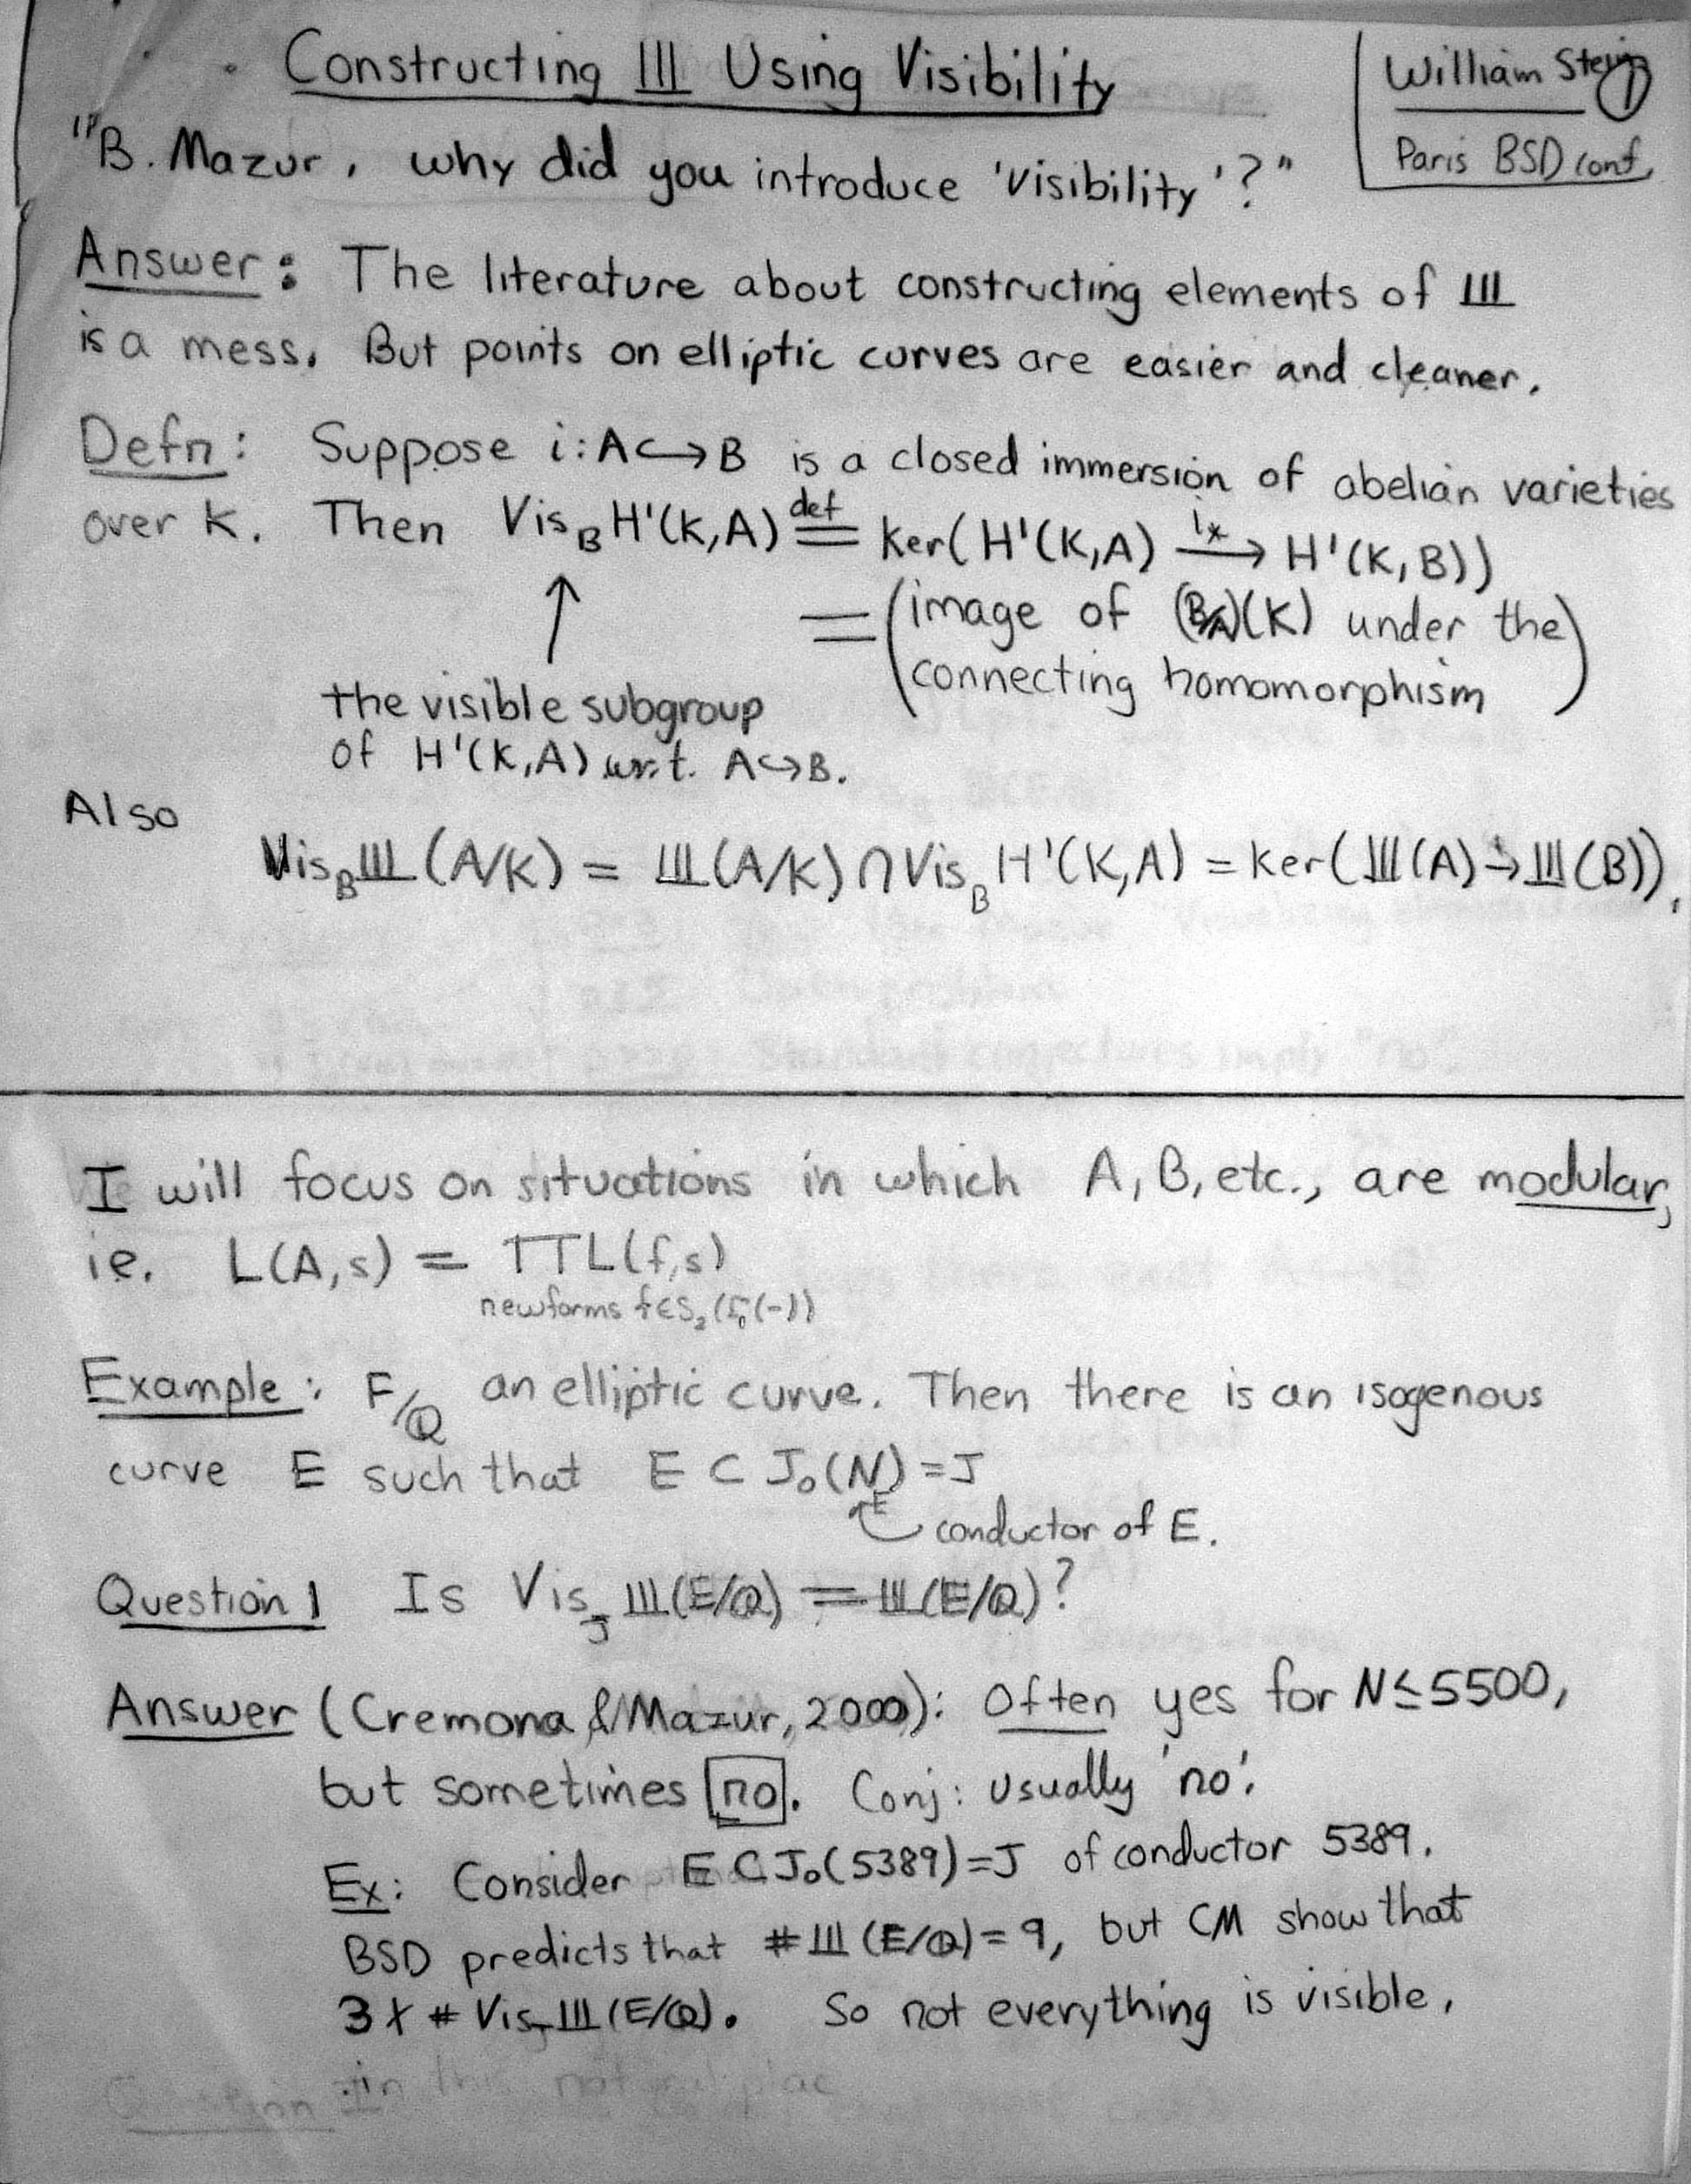 Constructing Ш Using Visibility
William Stein
Paris BSD conf.
"B. Mazur, why did you introduce 'visibility'?"
Answer: The literature about constructing elements of Ш
is a mess. But points on elliptic curves are easier and cleaner.
Defn: Suppose i: A↪B is a closed immersion of abelian varieties
over K. Then Vis_B H¹(K,A) ≝ Ker(H¹(K,A) —i_*→ H¹(K,B))
= (image of (B/A)(K) under the
connecting homomorphism)
↑
the visible subgroup
of H¹(K,A) w.r.t. A↪B.
Also
Vis_B Ш(A/K) = Ш(A/K) ∩ Vis_B H¹(K,A) = Ker(Ш(A)→Ш(B)).
I will focus on situations in which A, B, etc., are modular,
ie. L(A,s) = ∏ L(f,s)
newforms f∈S₂(Γ₀(-))
Example: F/Q an elliptic curve. Then there is an isogenous
curve E such that E ⊂ J₀(N_E) = J
conductor of E.
Question 1 Is Vis_J Ш(E/Q) = Ш(E/Q)?
Answer (Cremona & Mazur, 2000): Often yes for N≤5500,
but sometimes no. Conj: usually 'no'.
Ex: Consider E ⊂ J₀(5389)=J of conductor 5389.
BSD predicts that #Ш(E/Q)=9, but CM show that
3∤#Vis_J Ш(E/Q). So not everything is visible.